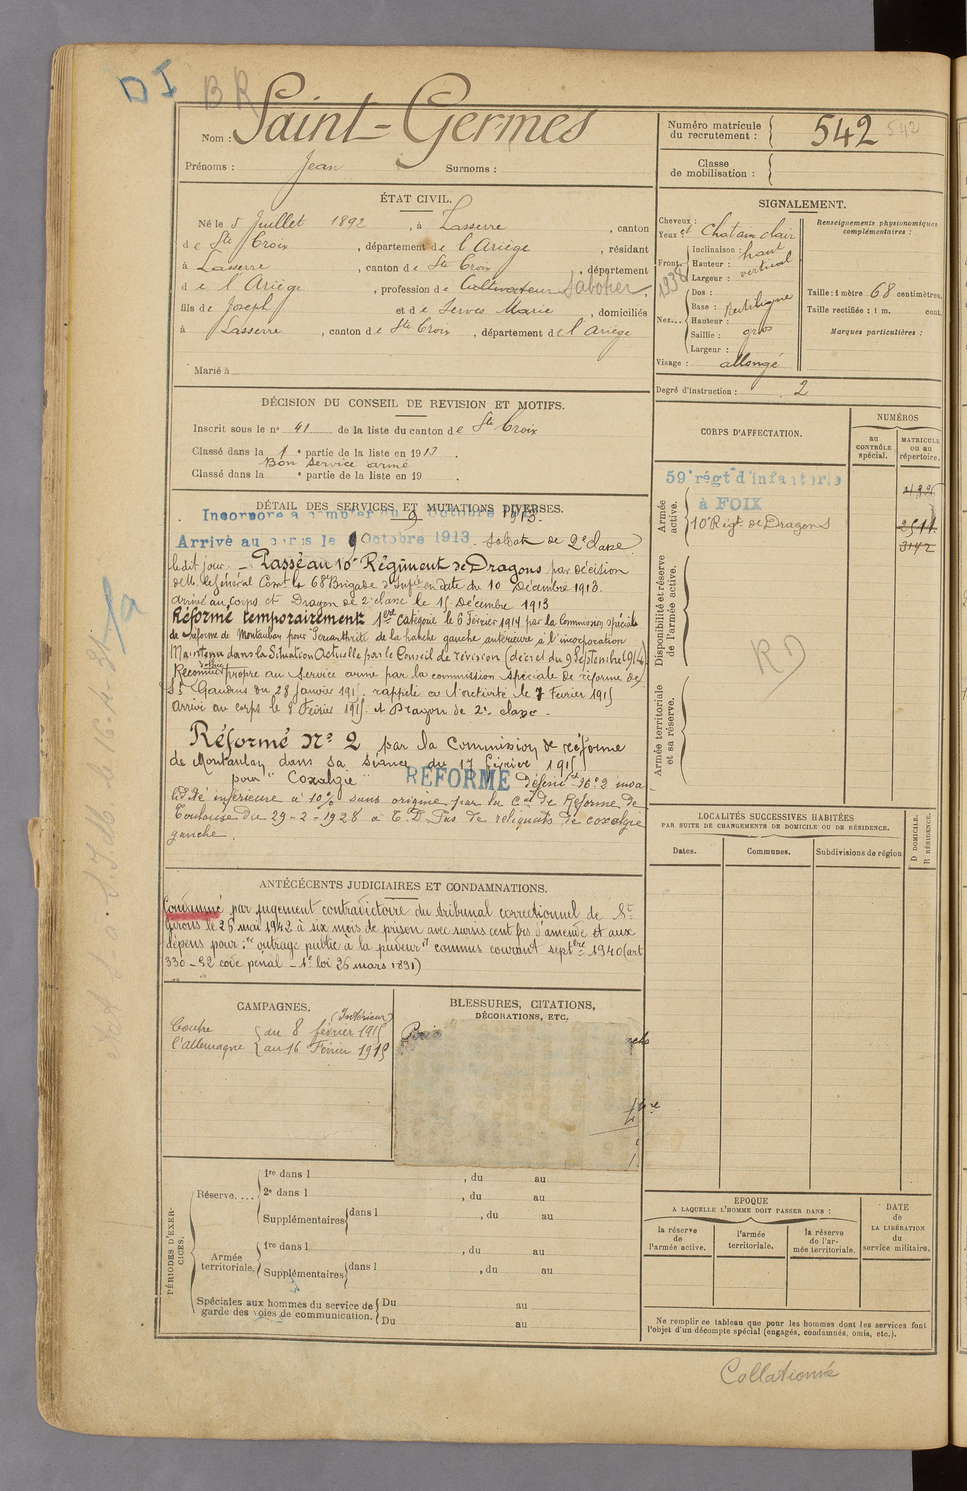 DI BR
Nom : Saint-Germes
Prénoms : Jean Surnoms :
Numéro matricule du recrutement : 542 542
Classe de mobilisation :
ÉTAT CIVIL.
Né le 5 Juillet 1892, à Lasserre, canton
de Ste Croix, département de l'Ariège, résidant
à Lasserre, canton de Ste Croix, département
de l'Ariège, profession de Cultivateur Sabotier,
fils de Joseph et de Serves Marie, domiciliés
à Lasserre, canton de Ste Croix, département de l'Ariège
Marié à
SIGNALEMENT.
Cheveux :
Yeux et Chatain clair
Front. Inclinaison : haut
Hauteur : vertical
Largeur :
1938
Nez... Dos :
Base : Rectiligne
Hauteur :
Saillie : gros
Largeur :
Visage : allongé
Renseignements physionomiques complémentaires :
Taille : 1 mètre 68 centimètres.
Taille rectifiée : 1 m. cent.
Marques particulières :
Degré d'instruction : 2
DÉCISION DU CONSEIL DE REVISION ET MOTIFS.
Inscrit sous le n° 41 de la liste du canton de Ste Croix
Classé dans la 1e partie de la liste en 1913.
Bon service armé
Classé dans la e partie de la liste en 19 .
DÉTAIL DES SERVICES ET MUTATIONS DIVERSES.
Incorporé à compter du 9 octobre 1913.
Arrivé au corps le 9 Octobre 1913. Soldat de 2e classe
le dit jour. - Passé au 10e Régiment de Dragons par décision
de M. le Général Comt la 68e Brigade d'Infie en date du 10 Décembre 1913.
arrivé au corps et Dragon de 2e classe le 15 Décembre 1913
Réformé temporairement 1ère catégorie le 6 Février 1914 par la Commission spéciale
de réforme de Montauban pour Périarthrite de la hanche gauche antérieure à l'incorporation
Maintenu dans la Situation Actuelle par le Conseil de révision (décret du 9 Septembre 1914)
Reconnu propre au service armé par la commission spéciale de réforme de
St Gaudens du 28 Janvier 1915. rappelé à l'activité le 7 Février 1915
Arrivé au corps le 8 Février 1915 et Dragon de 2e classe.
Réformé N° 2 par la Commission de réforme
de Montauban dans sa séance du 17 février 1915
pour "Coxalgie" RÉFORMÉ définit N° 2 inva
lidité inférieure à 10% sans origine par la Con de Réforme de
Toulouse du 29-2-1928 a E.D. Pas de reliquats de coxalgie
gauche.
ANTÉCÉCENTS JUDICIAIRES ET CONDAMNATIONS.
Condamné par jugement contradictoire du tribunal correctionnel de St
Girons le 26 mai 1942 à six mois de prison avec sursis cent frs d'amende et aux
dépens pour : "outrage public à la pudeur" commis courant septbre 1940 (art
330-52 code pénal - 1e loi 26 mars 1891)
CAMPAGNES.
Contre l'Allemagne (Intérieur)
du 8 février 1915
au 16 Février 1915
BLESSURES, CITATIONS, DÉCORATIONS, ETC.
CORPS D'AFFECTATION.
NUMÉROS
au CONTRÔLE spécial.
MATRICULE ou au répertoire.
Armée active.
59e régt d'infanterie
à FOIX
10e Régt de Dragons
3142
Disponibilité et réserve de l'armée active.
RD
Armée territoriale et sa réserve.
LOCALITÉS SUCCESSIVES HABITÉES
PAR SUITE DE CHANGEMENTS DE DOMICILE OU DE RÉSIDENCE.
Dates. Communes. Subdivisions de région
D DOMICILE.
R RÉSIDENCE.
PÉRIODES D'EXERCICES.
Réserve.... 1re dans l , du au
2e dans l , du au
Supplémentaires dans l , du au
Armée territoriale. 1re dans l , du au
Supplémentaires dans l , du au
Spéciales aux hommes du service de garde des voies de communication. Du au
Du au
EPOQUE
A LAQUELLE L'HOMME DOIT PASSER DANS :
la réserve de l'armée active.
l'armée territoriale.
la réserve de l'armée territoriale.
DATE de LA LIBÉRATION du service militaire.
Ne remplir ce tableau que pour les hommes dont les services font
l'objet d'un décompte spécial (engagés, condamnés, omis, etc.).
Collationné